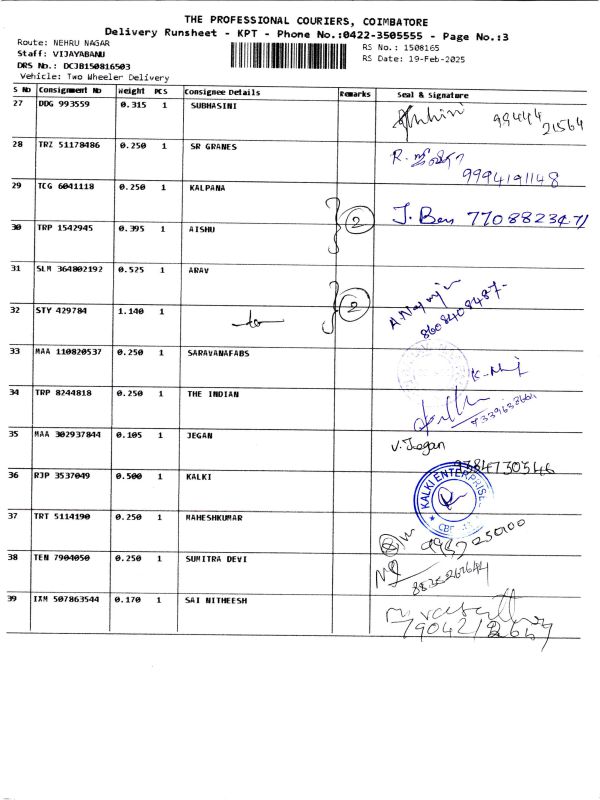 THE PROFESSIONAL COURIERS, COIMBATORE
Delivery Runsheet - KPT - Phone No.:0422-3505555 - Page No.:3
Route: NEHRU NAGAR
RS No.: 1508165
Staff: VIJAYABANU
RS Date: 19-Feb-2025
DRS No.: DCJB150816503
Vehicle: Two Wheeler Delivery
S No Consignment No Weight PCS Consignee Details Remarks Seal & Signature
27 DDG 993559 0.315 1 SUBHASINI 99444 21564
28 TRZ 51178486 0.250 1 SR GRANES R. 9994191148
29 TCG 6041118 0.250 1 KALPANA
30 TRP 1542945 0.395 1 AISHU 2 J. Ben 7708823471
31 SLM 364802192 0.525 1 ARAV
32 STY 429784 1.140 1 to 2 8608408487
33 MAA 110820537 0.250 1 SARAVANAFABS
34 TRP 8244818 0.250 1 THE INDIAN
35 MAA 302937844 0.105 1 JEGAN V. Jegan 9384730546
36 RJP 3537049 0.500 1 KALKI KALKI ENTERPRISE
37 TRT 5114190 0.250 1 MAHESHKUMAR
38 TEN 7904050 0.250 1 SUMITRA DEVI
39 IXM 507863544 0.170 1 SAI NITHEESH